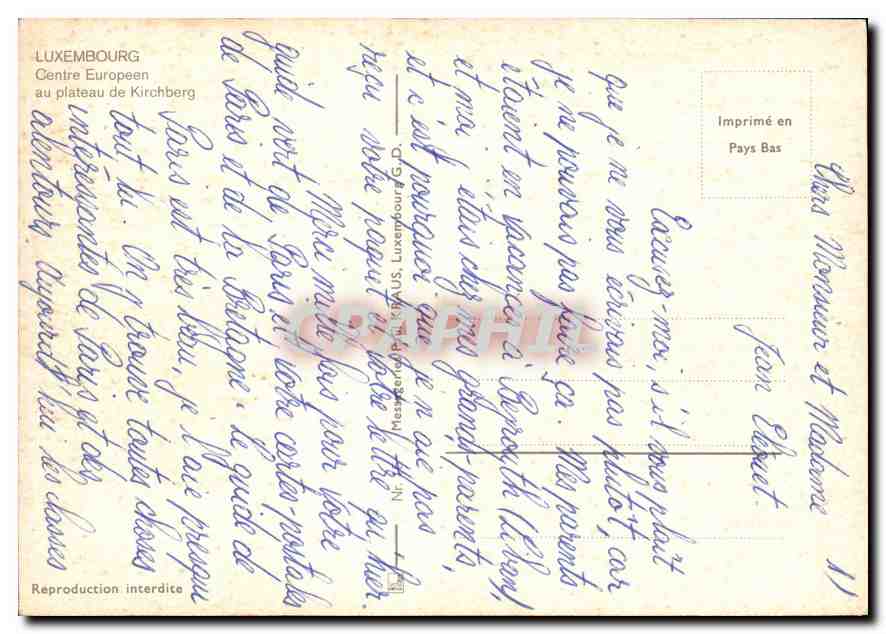 LUXEMBOURG
Centre Europeen
au plateau de Kirchberg
Imprimé en
Pays Bas
Messageries P. KRAUS, Luxembourg G.D.
Nr.
Reproduction interdite
CPAPHIL
1)
Chers Monsieur et Madame
Jean
Excusez-moi, s'il vous plaît
que je ne vous écrivais pas plutôt, car
je ne pouvais pas faire ça. Mes parents
étaient en vacances à Beyrouth (Liban),
et moi j'étais chez mes grand-parents,
et c'est pourquoi que je n'aie pas
reçu votre paquet et votre lettre qu'hier.
Merci mille fois pour votre
guide vert de Paris et votre cartes-postales
de Paris et de la Bretagne. Le guide de
Paris est très beau, je l'aie presque
tout lu. On y trouve toutes choses
intéressantes de Paris et des
alentours. Aujourd'hui les classes